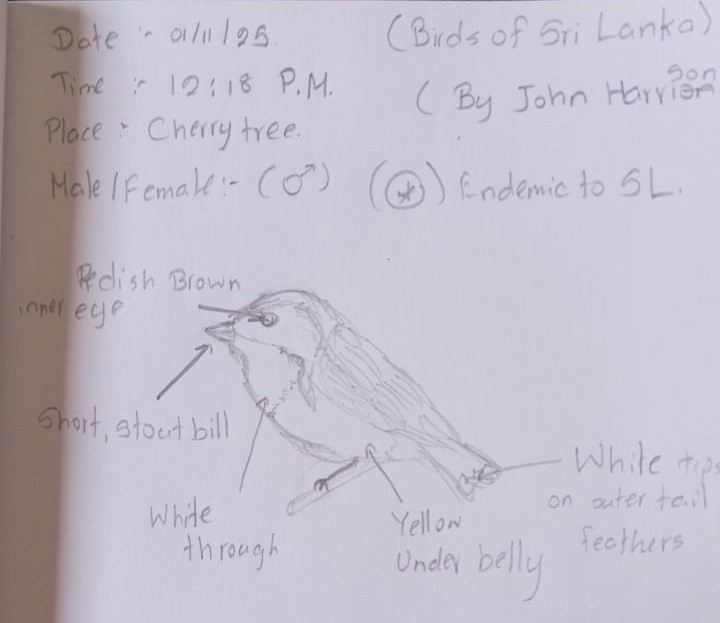 Date :- 01/11/25.
(Birds of Sri Lanka)
Time :- 12:18 P.M.
( By John Harrison
Place :- Cherry tree.
Male / Female :- (♂) (⊛) Endemic to SL.
Redish Brown
inner eye
Short, stout bill
White
through
Yellow
Under belly
White tips
on outer tail
feathers